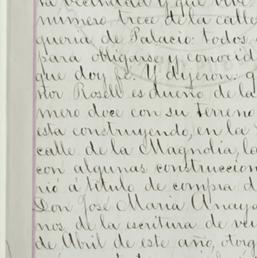 la vecindad y que vive
número trece de la calle
quería de Palacio: todos
para obligarse y conocid
que doy fé. Y dijeron: q
tor Rosell es dueño de la
mero doce con su terreno
esta construyendo, en la
calle de la Magnolia, la
con algunas construccion
rió á título de compra d
Don José María Anaya
nos de la escritura de ve
de Abril de este año, otorg